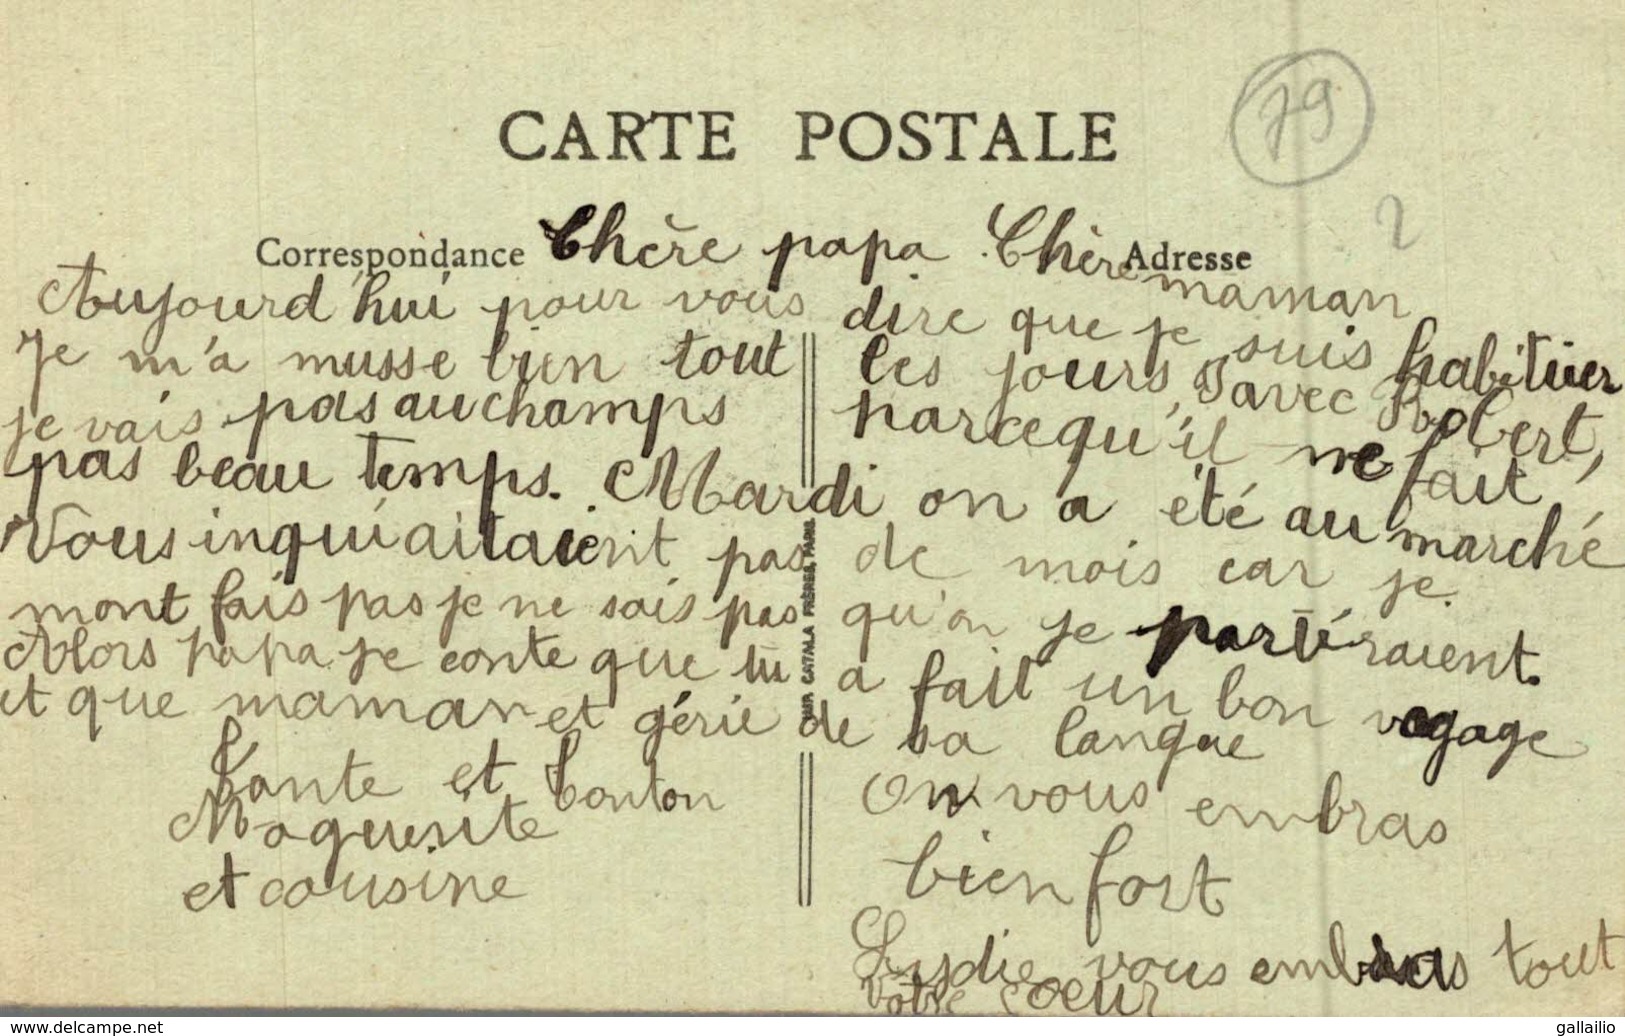 79
CARTE POSTALE
2
Correspondance
Adresse
Chère papa Chère maman
Aujourd'hui pour vous dire que je suis habituer
Je m'a musse bien tout les jours, avec Robert,
je vais pas au champs parcequ'il ne fait
pas beau temps. Mardi on a été au marché
Vous inquiaitaient pas de mois car je
mont fais pas je ne sais pas qu'an je partiraient.
Alors papa je conte que tu a fait un bon vogage
et que maman et gérie de sa langue
Tante et tonton On vous embras
Moguerite bien fort
et cousine
Lydie vous embras tout
votre coeur
IMP. CATALA FRÈRES, PARIS
www.delcampe.net
gallailio